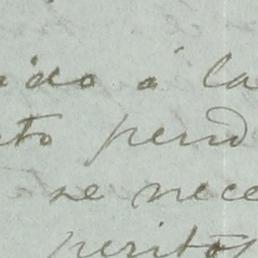 ido á la
to pend
se nece
peritos